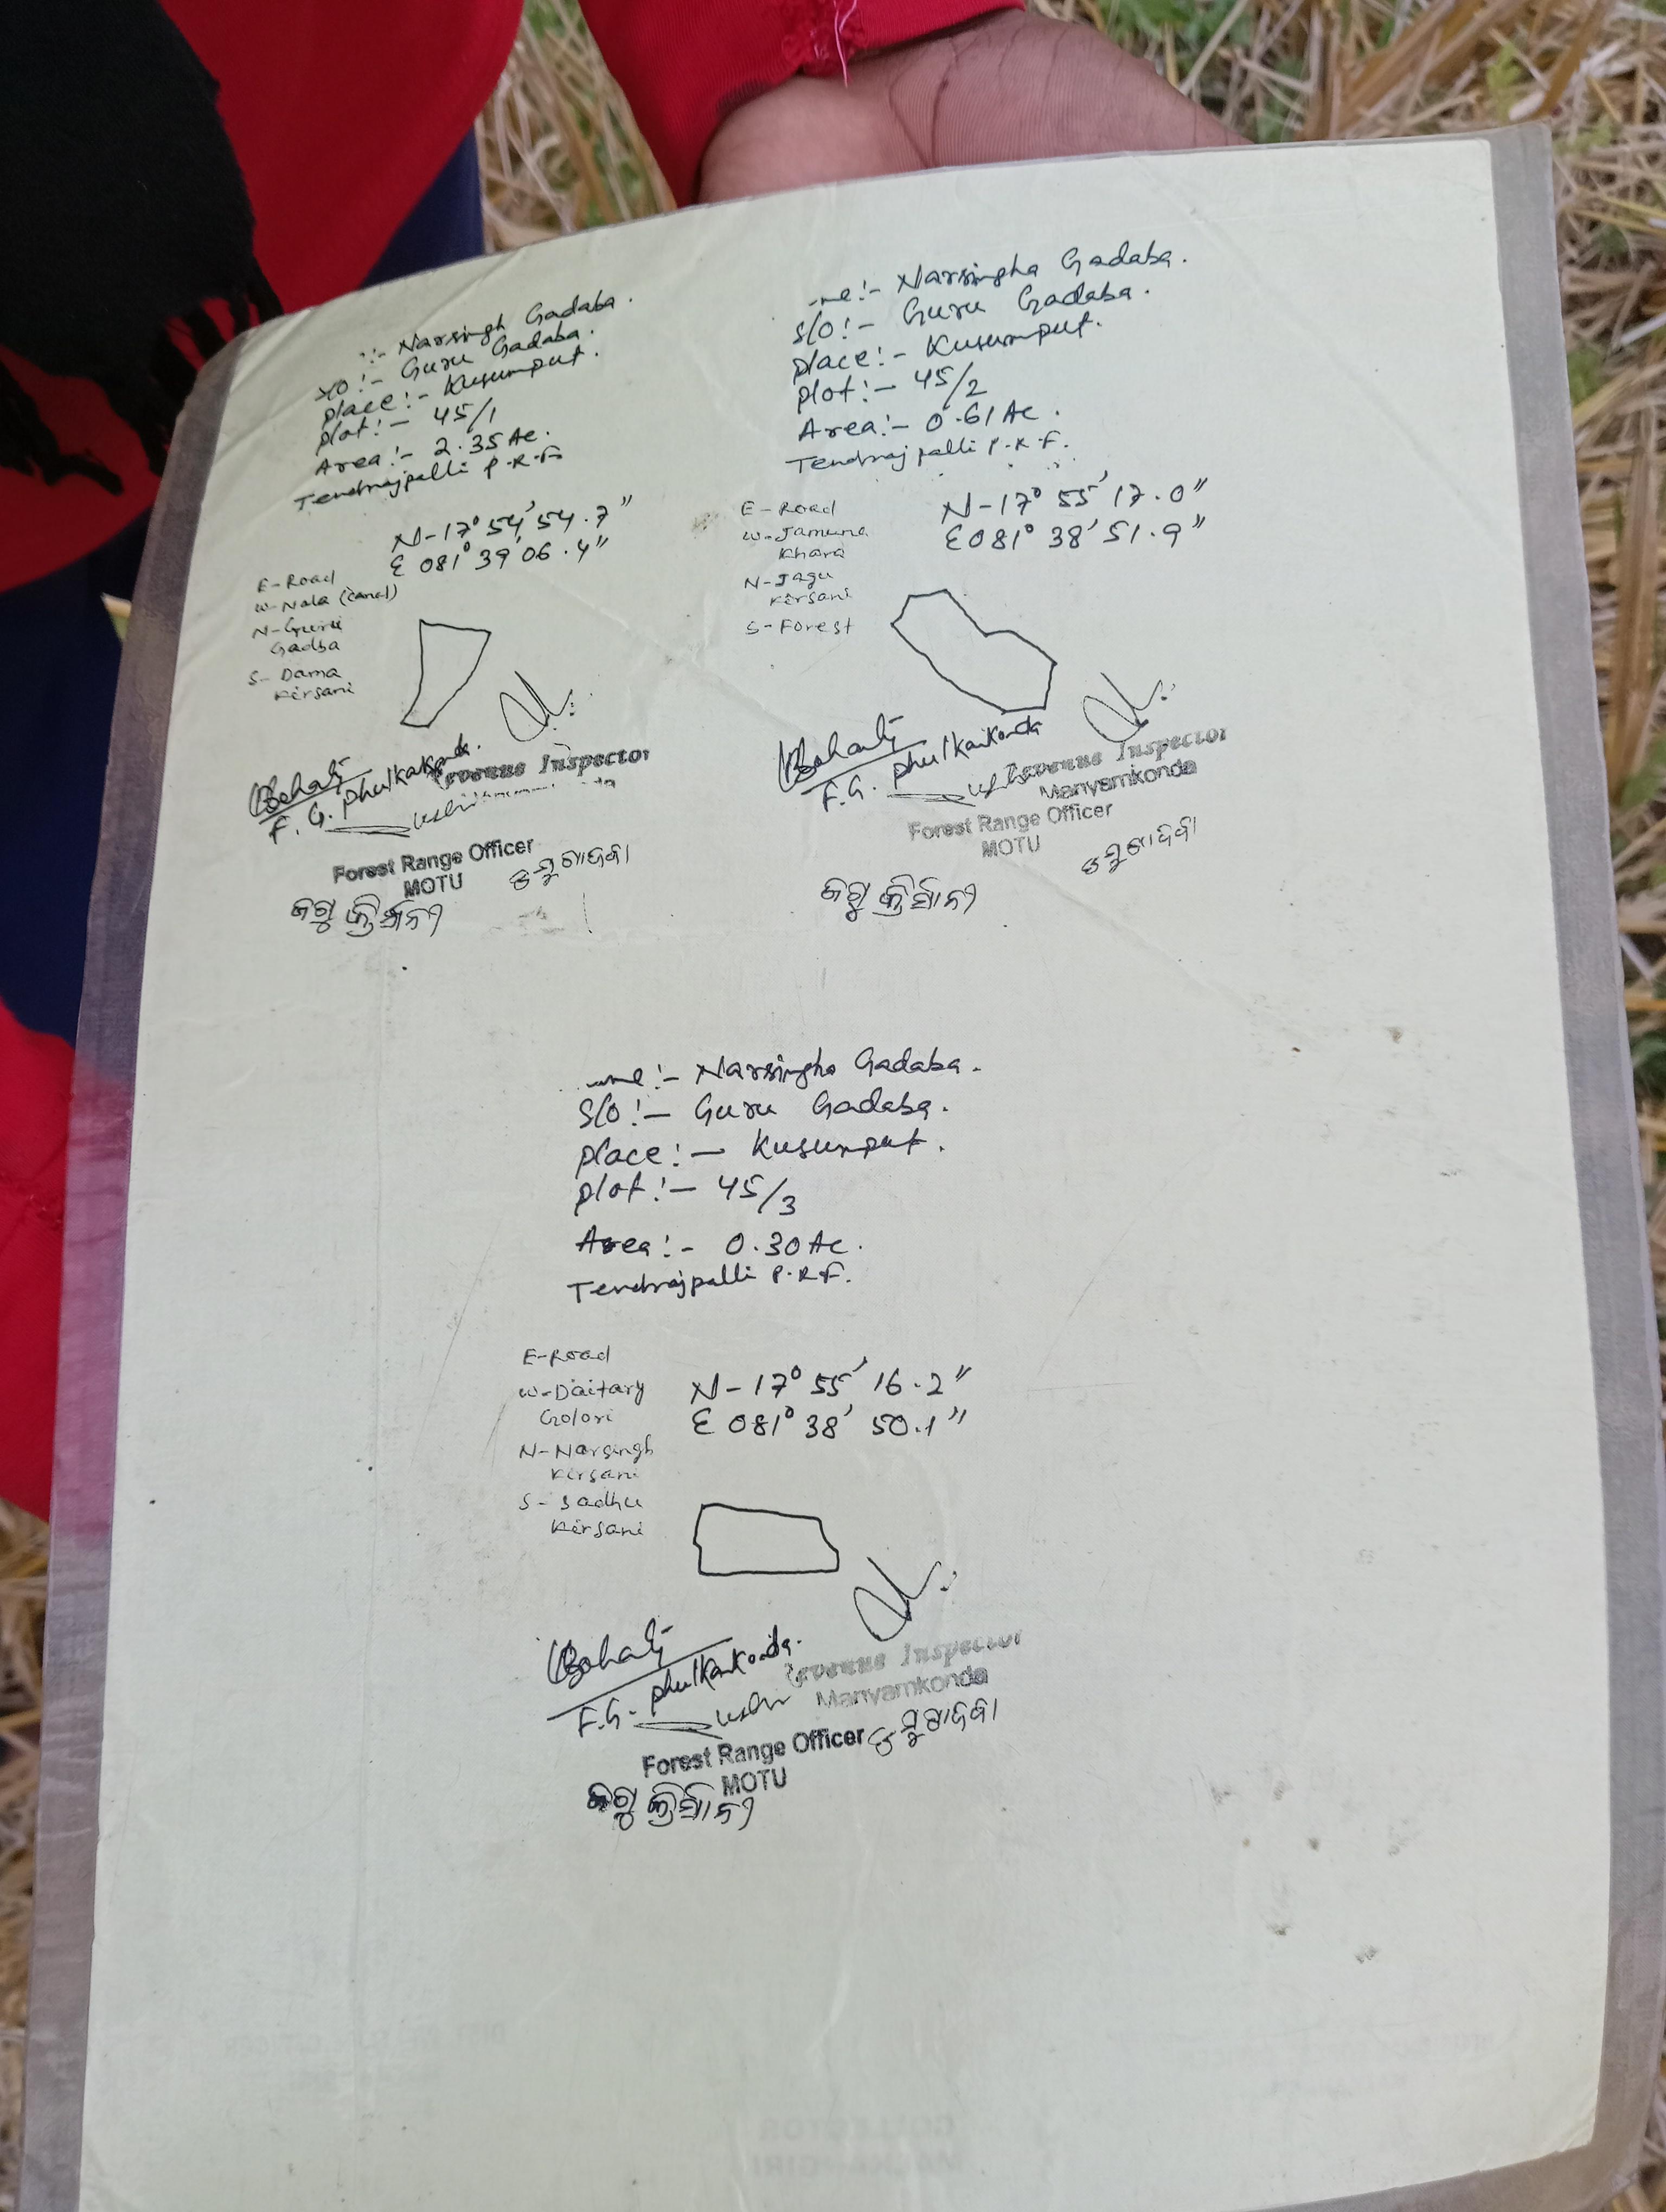 :- Narsingh Gadaba.
S/O :- Guru Gadaba.
place :- Kusumput.
plot :- 45/1
Area :- 2.35 Ac.
Tendrajpalli P.R.F
N-17° 54' 54.7"
E 081° 39' 06.4"
E-Road
W-Nala (canal)
N-Guru
Gadba
S- Dama
Kirsani
F.G. Phulkankonda.
Revenue Inspector
Forest Range Officer
MOTU
ଜଗୁ କିର୍ସାନୀ
me :- Narsingha Gadaba.
S/O :- Guru Gadaba.
place :- Kusumput.
plot :- 45/2
Area :- 0.61 Ac.
Tendrajpalli P.R.F.
N-17° 55' 17.0"
E 081° 38' 51.9"
E-Road
W-Jamuna
Khara
N-Jagu
Kirsani
S-Forest
F.G. Phulkankonda
Revenue Inspector
Manyamkonda
Forest Range Officer
MOTU
ଜଗୁ କିର୍ସାନୀ
me :- Narsingha Gadaba.
S/O :- Guru Gadaba.
place :- Kusumput.
plot :- 45/3
Area :- 0.30 Ac.
Tendrajpalli P.R.F.
N-17° 55' 16.2"
E 081° 38' 50.1"
E-Road
W-Daitary
Golori
N-Narsingh
Kirsani
S- Sadhu
Kirsani
F.G. Phulkankonda.
Revenue Inspector
Manyamkonda
Forest Range Officer
MOTU
ଜଗୁ କିର୍ସାନୀ